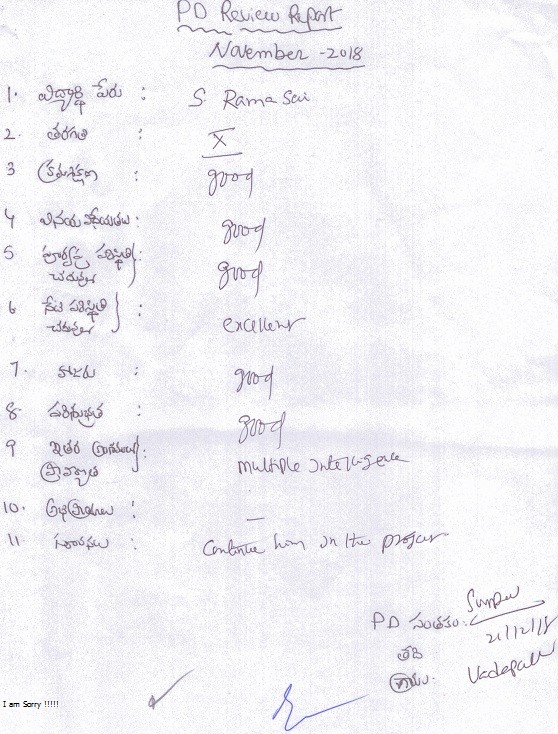 PD Review Report
November - 2018
1. విద్యార్థి పేరు : S. Rama Sai
2. తరగతి : X
3 క్రమశిక్షణ : good
4 వినయ విధేయతలు : good
5 పూర్వపు పరిస్థితి : good
చదువులు
6 నేటి పరిస్థితి : excellent
చదువులు
7. : good
8. పరిశుభ్రత : good
9 ఇతర : Multiple Intelligence
ప్రావీణ్యత
10. అభిప్రాయాలు : —
11. సూచనలు : Continue him in the project
PD సంతకం:
తేది 21/12/18
I am Sorry !!!!!